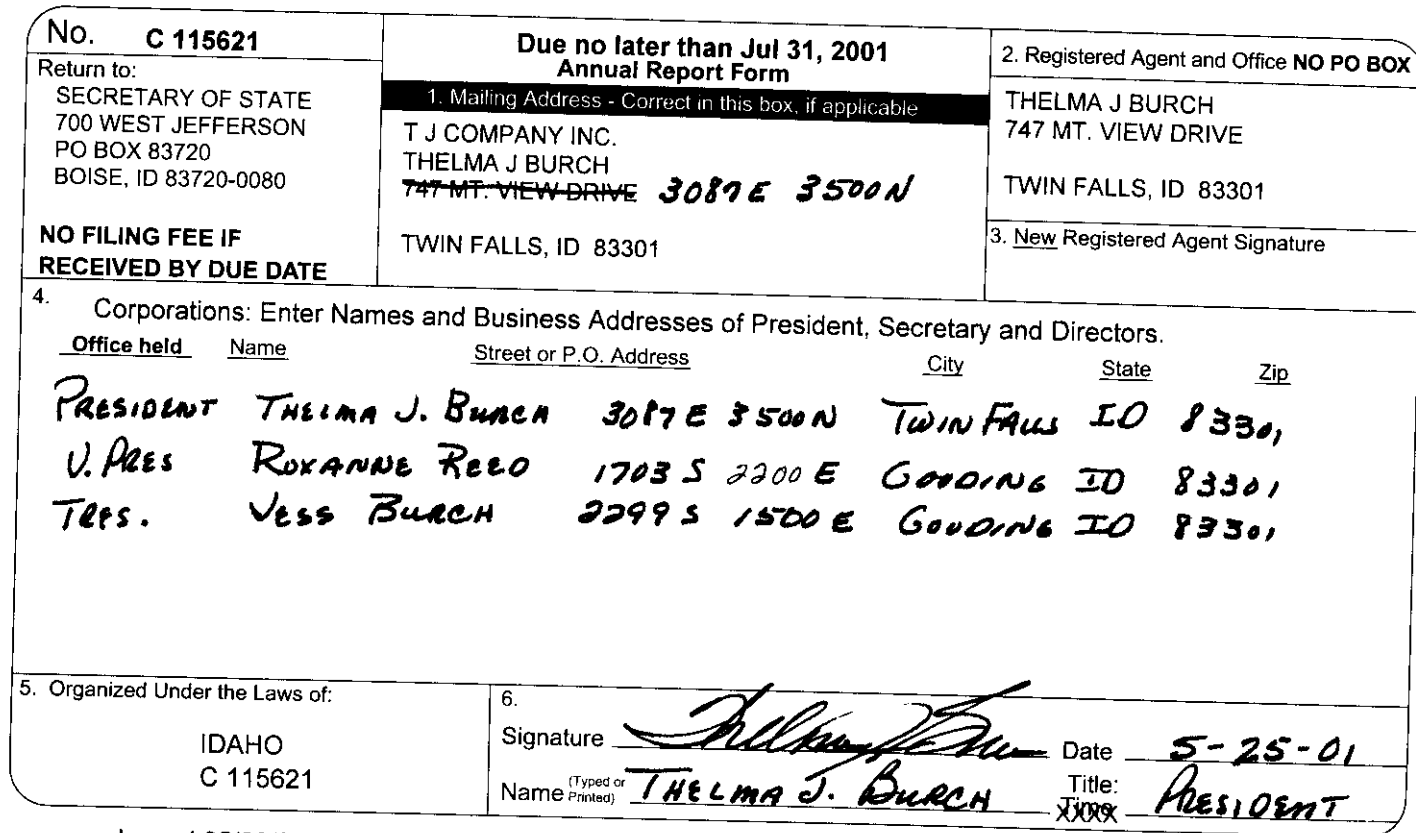 No. C 115621
Return to:
SECRETARY OF STATE
700 WEST JEFFERSON
PO BOX 83720
BOISE, ID 83720-0080
NO FILING FEE IF
RECEIVED BY DUE DATE
Due no later than Jul 31, 2001
Annual Report Form
1. Mailing Address - Correct in this box, if applicable
T J COMPANY INC.
THELMA J BURCH
747 MT. VIEW DRIVE 3087 E 3500 N
TWIN FALLS, ID 83301
2. Registered Agent and Office NO PO BOX
THELMA J BURCH
747 MT. VIEW DRIVE
TWIN FALLS, ID 83301
3. New Registered Agent Signature
4. Corporations: Enter Names and Business Addresses of President, Secretary and Directors.
Office held Name Street or P.O. Address City State Zip
PRESIDENT THELMA J. BURCH 3087 E 3500 N TWIN FALLS ID 83301
V. PRES ROXANNE REED 1703 S 2200 E GOODING ID 83301
TRES. VESS BURCH 2299 S 1500 E GOODING ID 83301
5. Organized Under the Laws of:
IDAHO
C 115621
6.
Signature Thelma J Burch Date 5-25-01
Name (Typed or Printed) THELMA J. BURCH Title: PRESIDENT